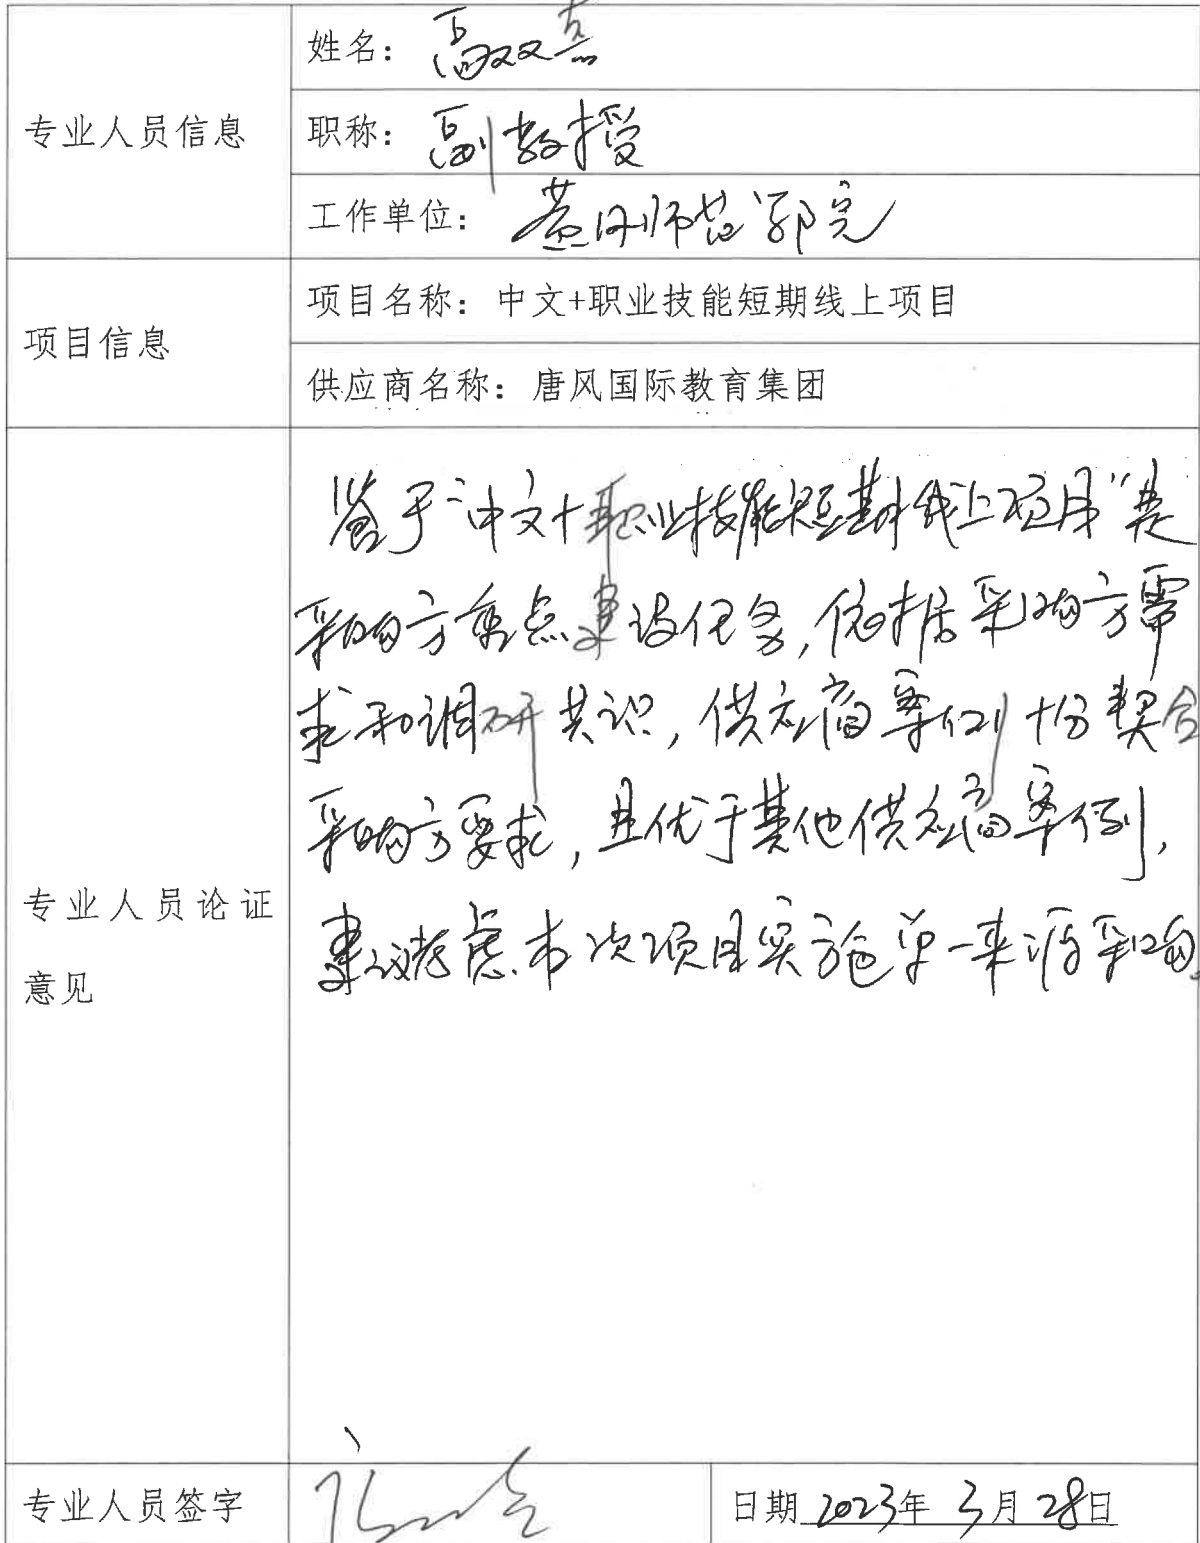 专业人员信息
姓名：高双喜
职称：副教授
工作单位：黄冈师范学院
项目信息
项目名称：中文+职业技能短期线上项目
供应商名称：唐风国际教育集团
专业人员论证
意见
鉴于“中文+职业技能短期线上项目”是
采购方重点建设任务，依据采购方需
求和调研共识，供应商案例十分契合
采购方要求，且优于其他供应商案例，
建议考虑本次项目实施单一来源采购。
专业人员签字
日期 2023年 3月 28日